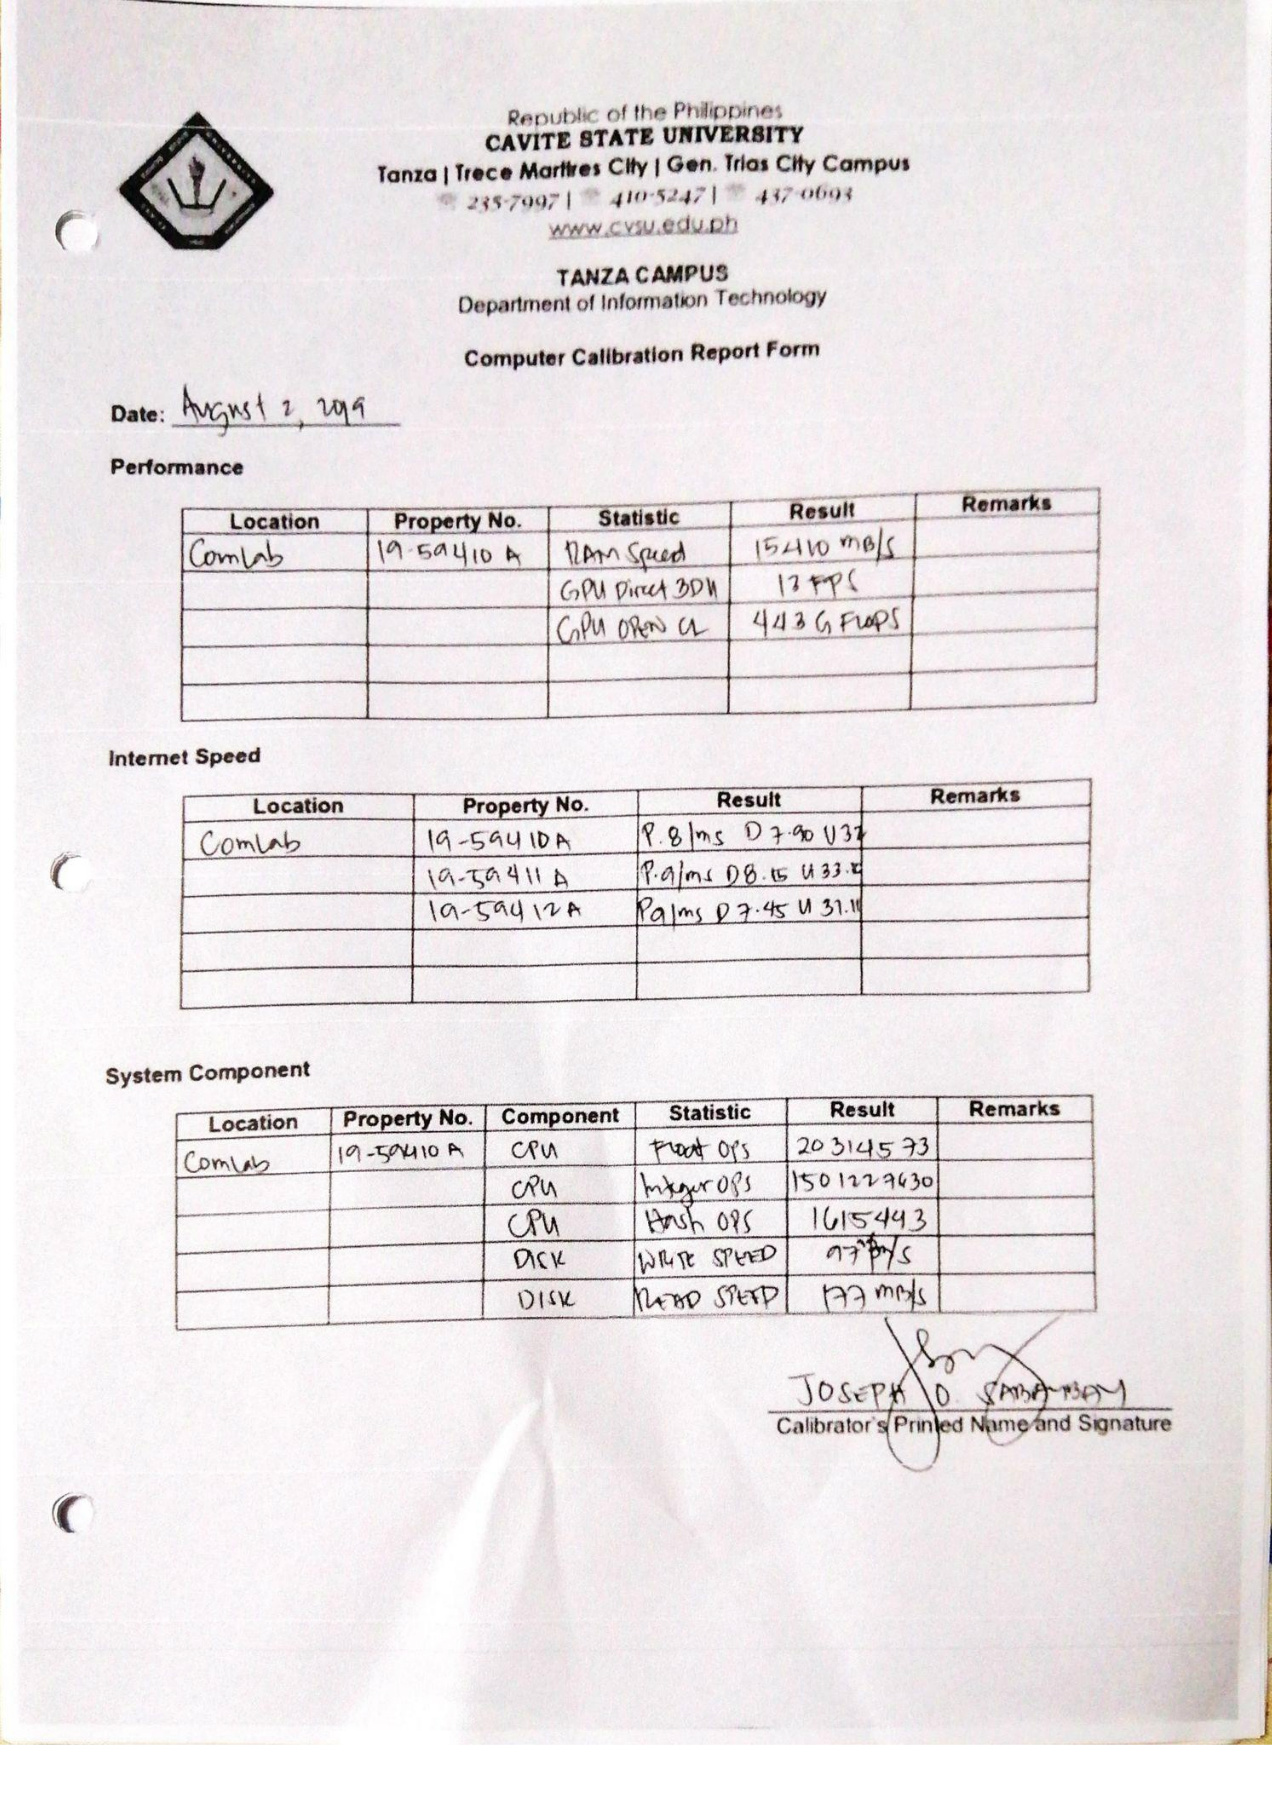 Republic of the Philippines
CAVITE STATE UNIVERSITY
Tanza | Trece Martires City | Gen. Trias City Campus
235-7997 | 410-5247 | 437-0693
www.cvsu.edu.ph
TANZA CAMPUS
Department of Information Technology
Computer Calibration Report Form
Date: August 2, 2019
Performance
Location Property No. Statistic Result Remarks
Comlab 19-59410 A RAM Speed 15410 MB/S
GPU Direct 3D 13 FPS
GPU OPEN CL 443 G FLOPS
Internet Speed
Location Property No. Result Remarks
Comlab 19-59410A P. 8/ms D 7.90 U
19-59411 A P. 9/ms D 8.15 U 33.
19-59412A P 9/ms D 7.45 U
System Component
Location Property No. Component Statistic Result Remarks
Comlab 19-59410 A CPU Float OPS 20314573
CPU Integer OPS
CPU Hash OPS 1615443
DISK WRITE SPEED 97
DISK READ SPEED 177 MB/s
JOSEPH
Calibrator's Printed Name and Signature